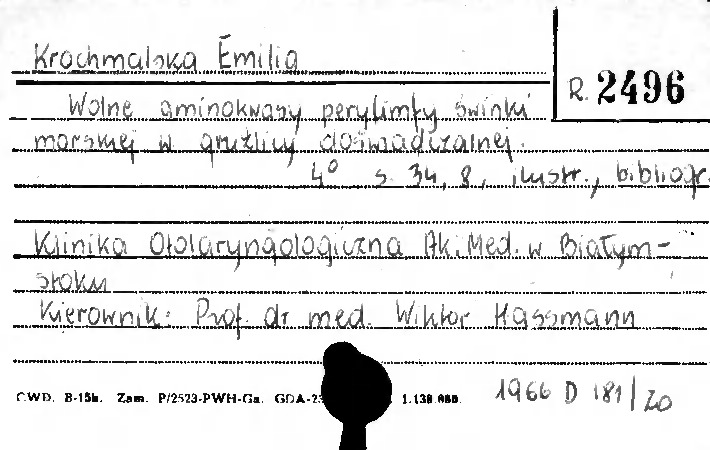 Krochmalska Emilia
R. 2496
Wolne aminokwasy perylimfy świnki
morskiej w gruźlicy doświadczalnej.
4° s. 34, 8, ilustr., bibliogr.
Klinika Otolaryngologiczna Ak. Med. w Białym-
stoku
Kierownik: Prof. dr med. Wiktor Hassmann
CWD. B-15b. Zam. P/2523-PWH-Ga. GDA-2 1.138.000.
1966 D 181/20